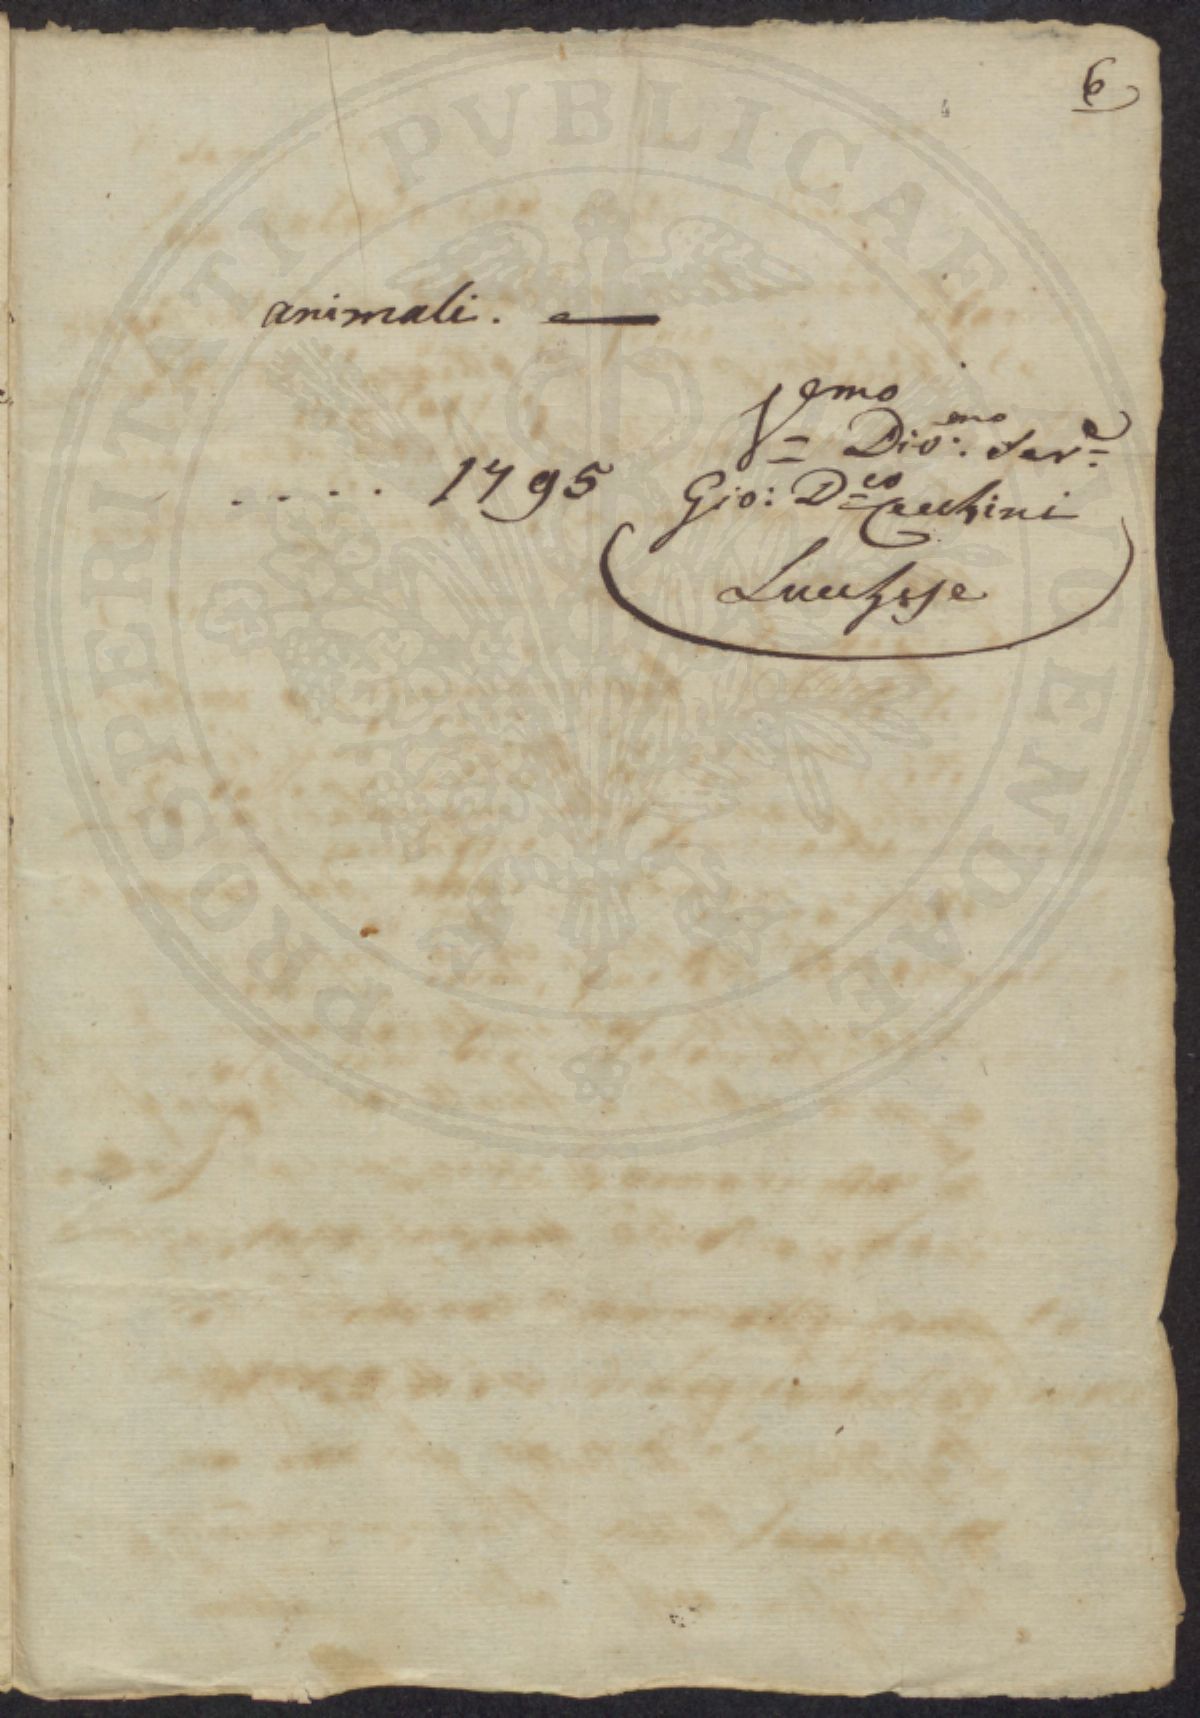 6
4
animali.
V = emo
Div:mo Ser.e
. . . . 1795 Gio: D=co Cecchini
Lucchese
PROSPERITATI PVBLICAE AVGENDAE